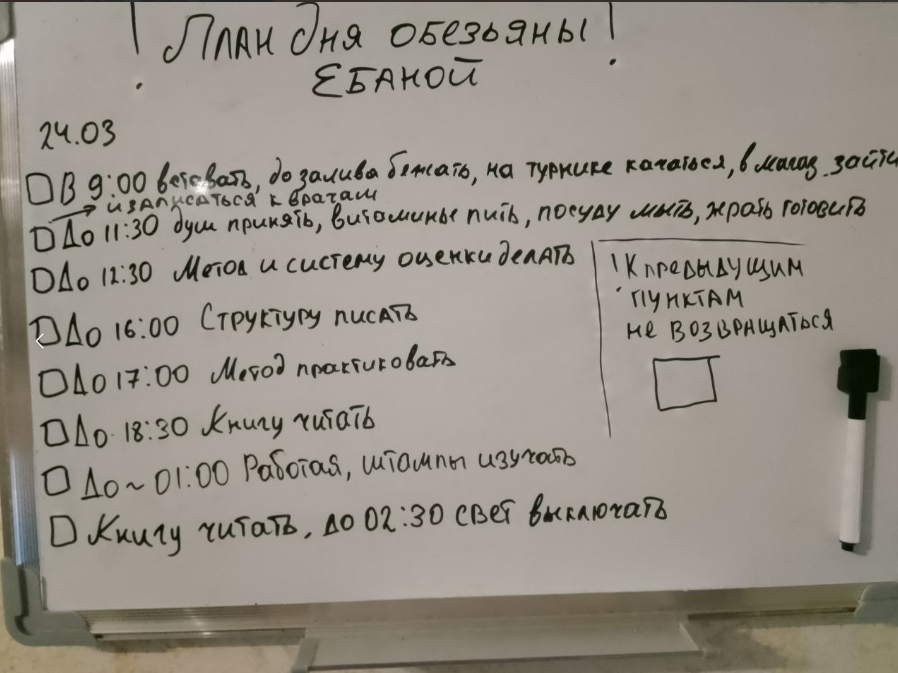 ! План дня обезьяны !
ебаной
24.03
В 9:00 вставать, до залива бежать, на турнике качаться, в магаз зайти
и записаться к врачам
До 11:30 душ принять, витамины пить, посуду мыть, жрать готовить
До 12:30 Метод и систему оценки делать
До 16:00 Структуру писать
До 17:00 Метод практиковать
До 18:30 Книгу читать
До ~ 01:00 Работая, штампы изучать
Книгу читать, до 02:30 свет выключать
! К предыдущим
пунктам
не возвращаться